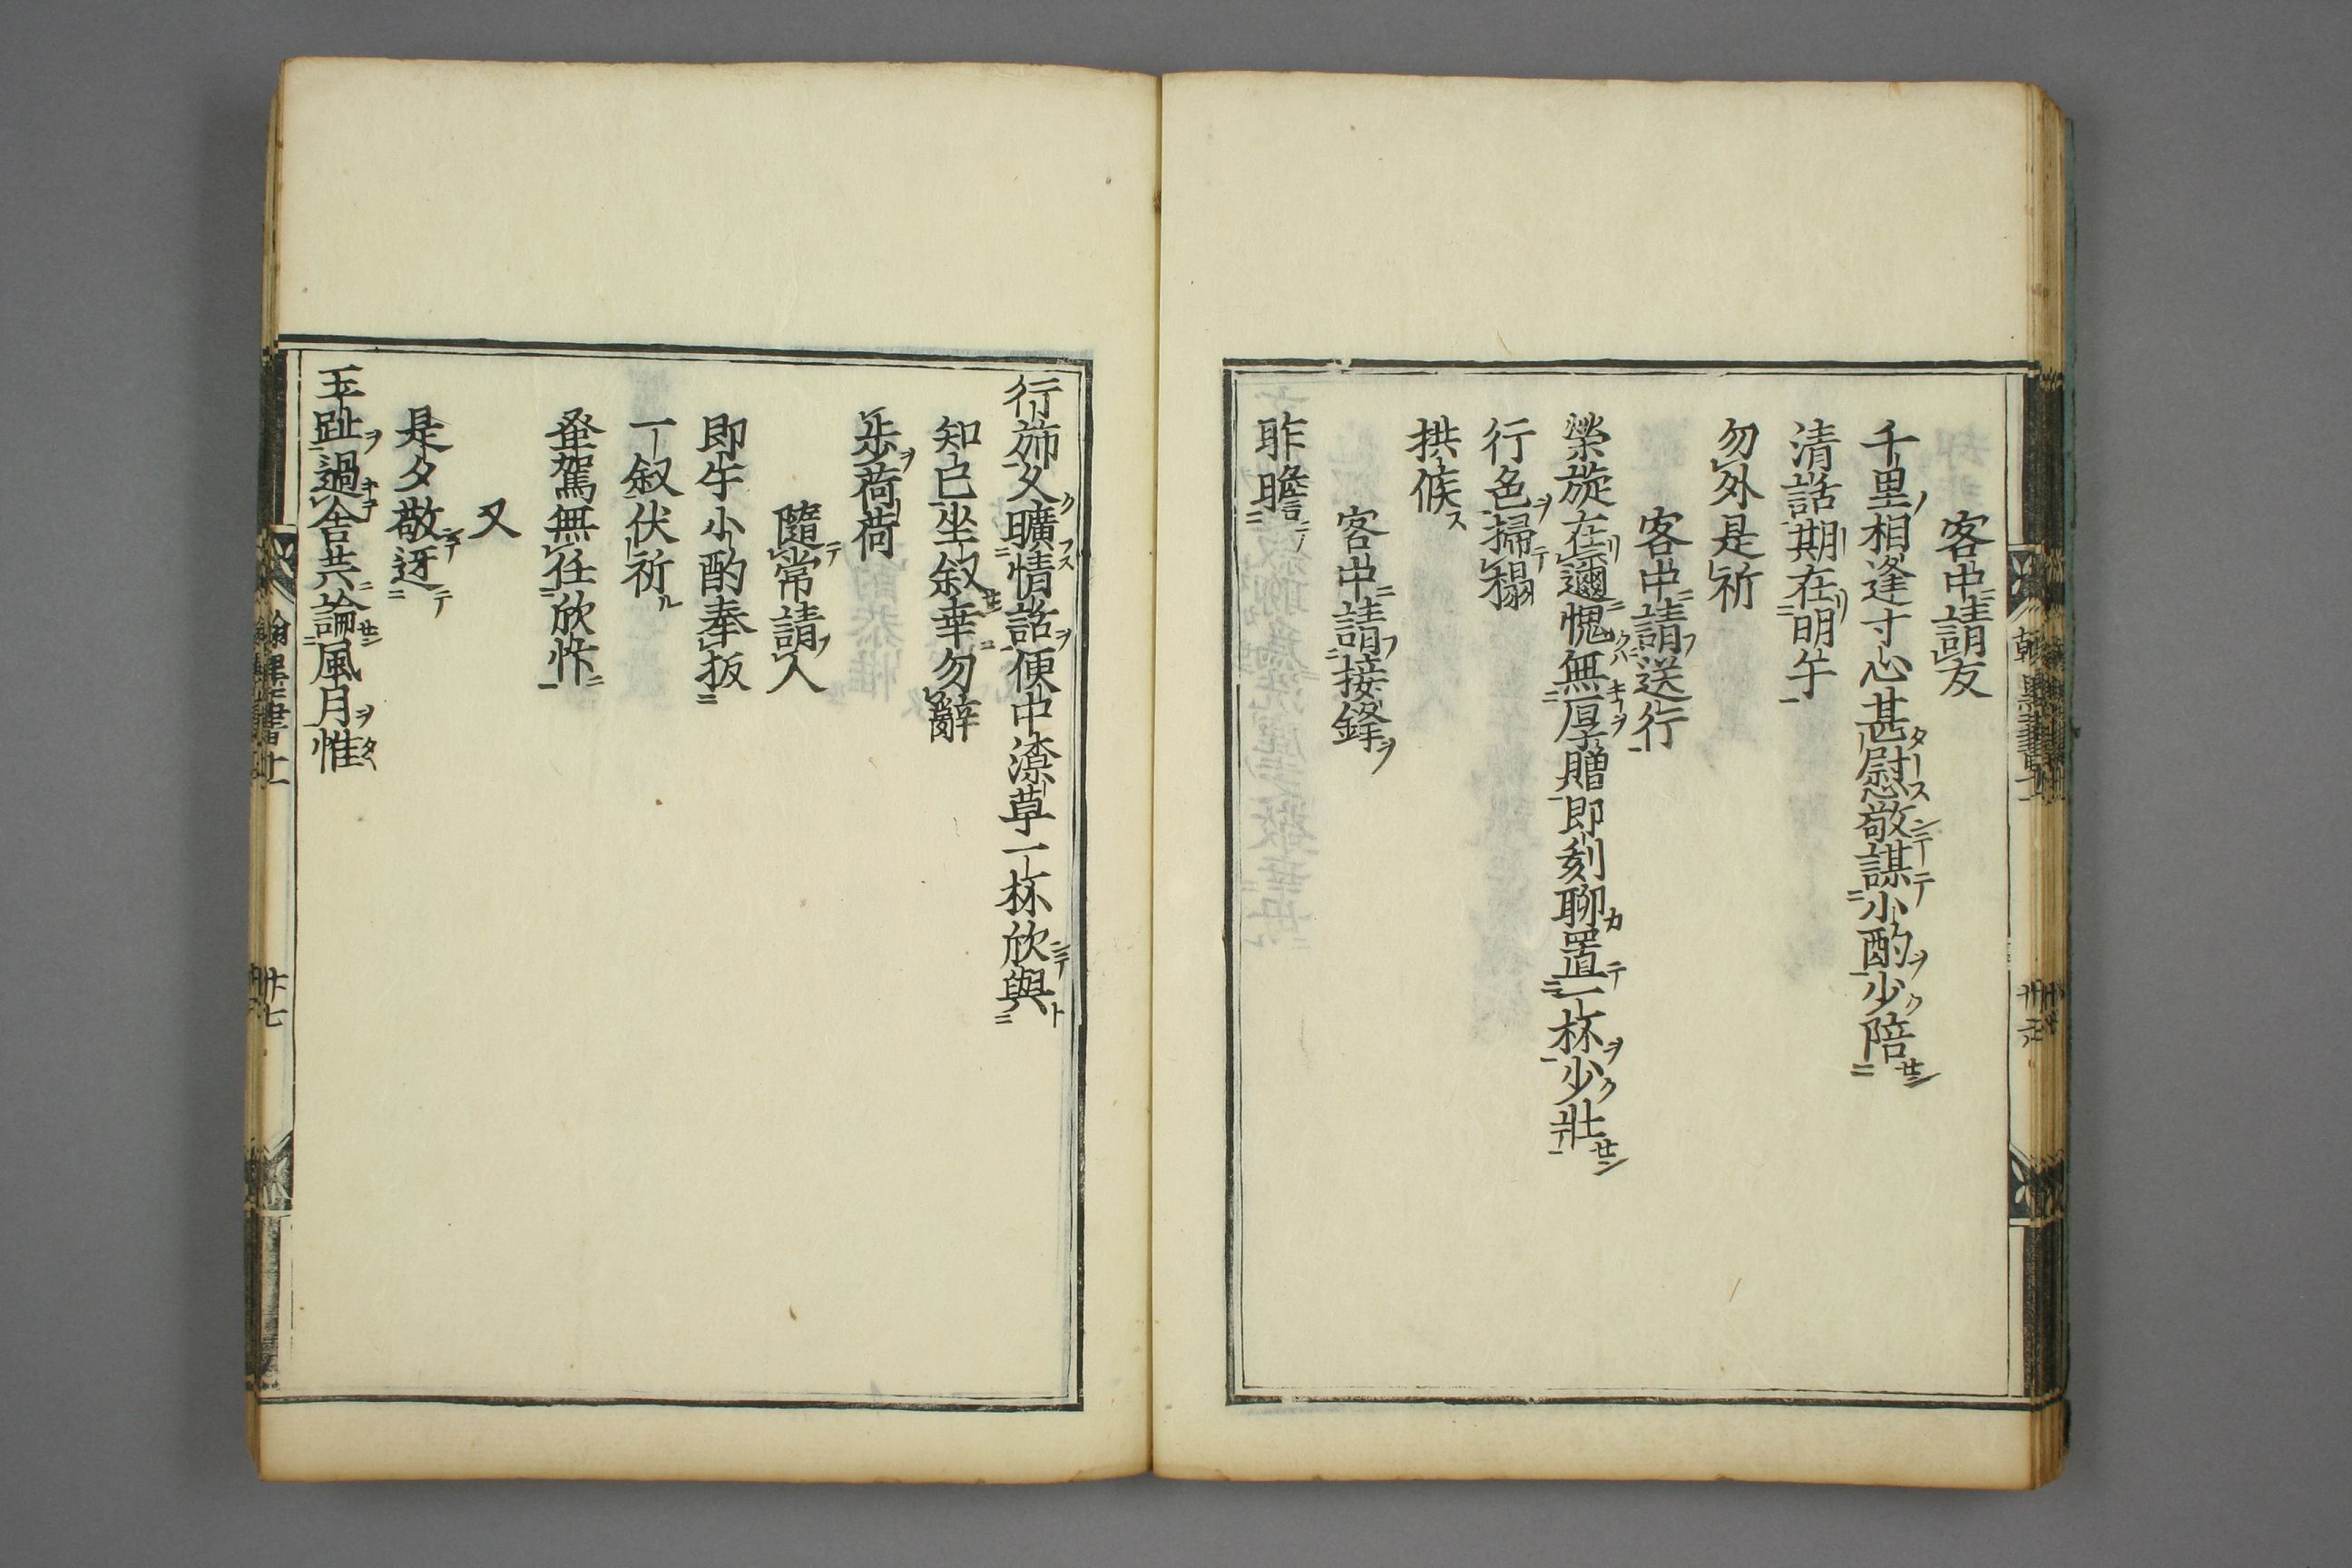 客中請友
千里相逢寸心甚慰敬謀小酌少陪
清話期在明午
勿外是祈
客中請送行
榮旋在邇愧無厚贈即刻聊置一杯少壯
行色掃榻
拱候
客中請接鋒
昨瞻
行斾久曠情話便中潦草一杯欣與
知已坐叙幸勿辭
步荷荷
隨常請人
即午小酌奉扳
一叙伏祈
蚤駕無任欣怍
又
是夕敬迓
玉趾過舍共論風月惟
翰墨書上
廿七